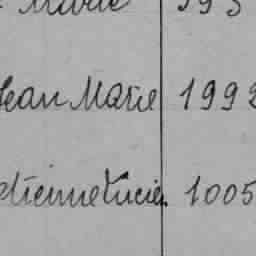 Marie 193
Jean Marie 1992
etienne Lucien 1005